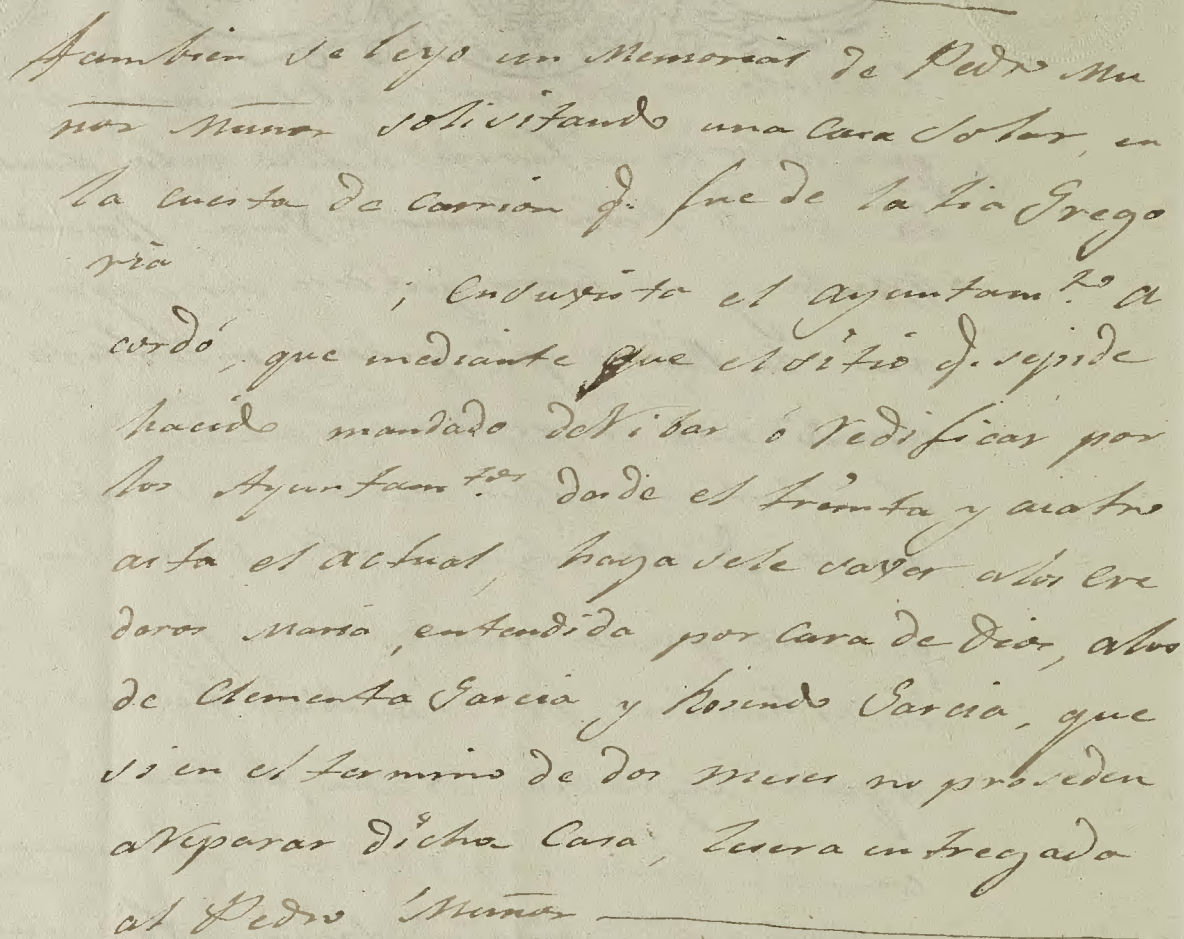 Tambien se leyo un Memorial de Pedro Mu
ñoz Muñoz solisitando una Casa Solar, en
la cuesta de carrion q. fue de la tia Grego
ria
; en su vista el ayuntam.to a
cordó, que mediante que el sitio q. se pide
hacido mandado deRibar ó Redificar por
los Ayuntam.tos desde el treinta y cuatro
asta el actual, hagasele saver alos Ere
deros Maria, entendida por Cara de Dios, alos
de Clementa Garcia y Rosendo Garcia, que
si en el termino de dos meses no proseden
aReparar dicha Casa, lesera entregada
al Pedro Muñoz